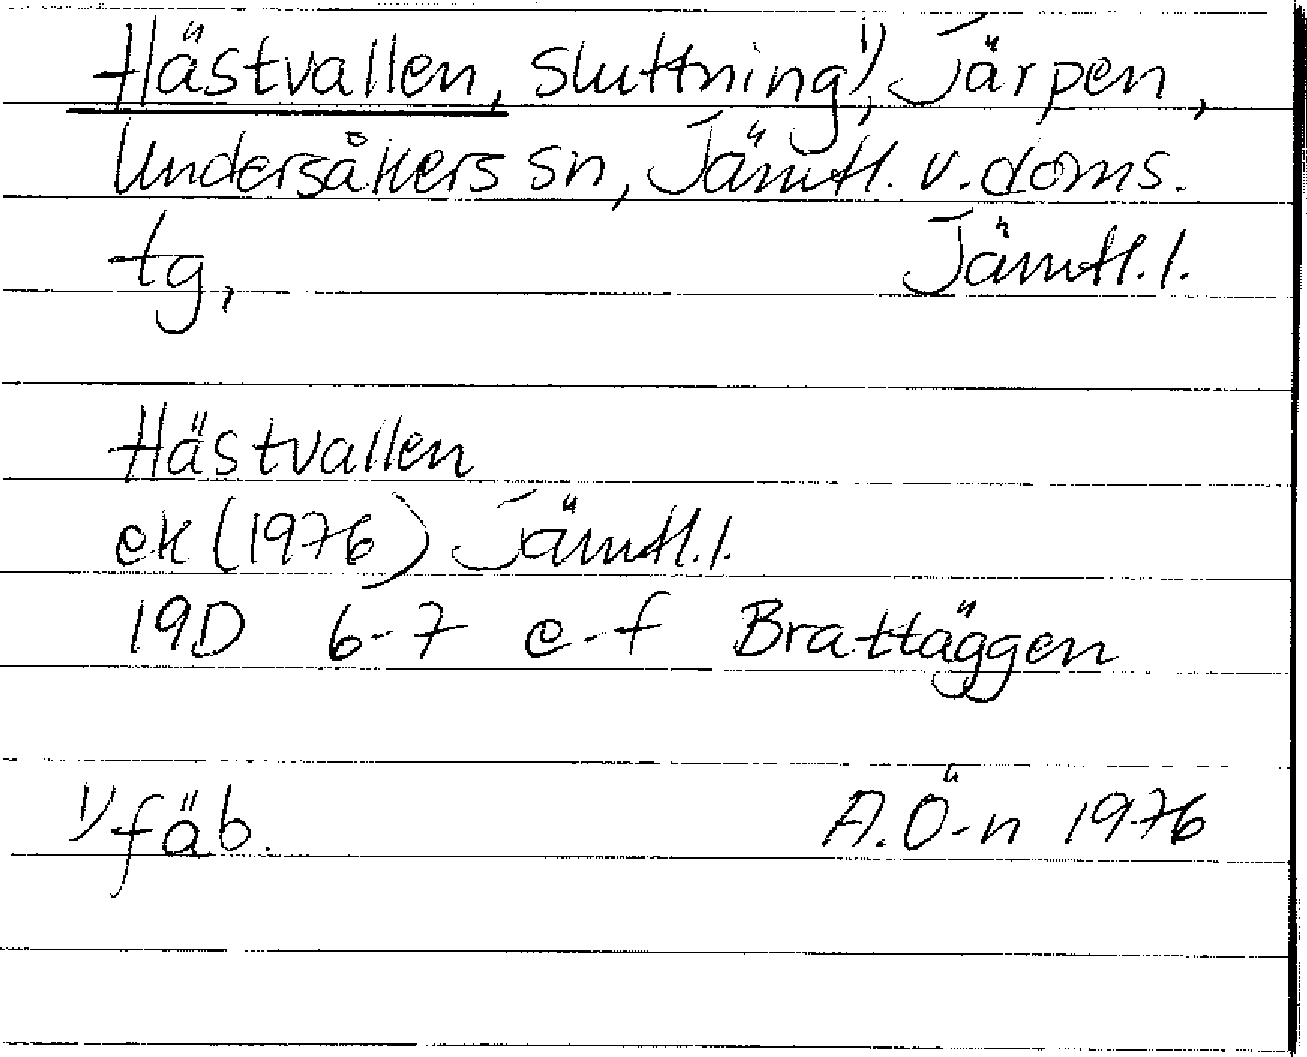 Hästvallen, sluttning¹⁾, Järpen,
Undersåkers sn, Jämtl. v. doms.
tg, Jämtl. l.
Hästvallen
ek (1976) Jämtl. l.
19D 6-7 e-f Brattäggen
¹⁾ fäb. A.Ö-n 1976